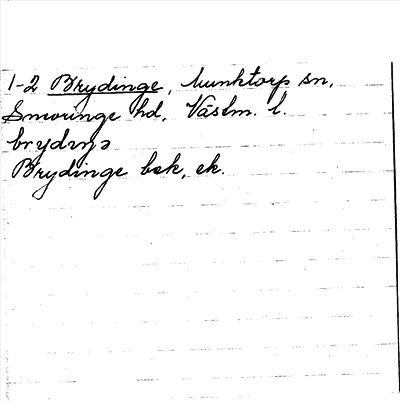 1-2 Brydinge, Munktorp sn,
Snevringe hd, Västm. l.
brydıŋə
Brydinge bek, ek.